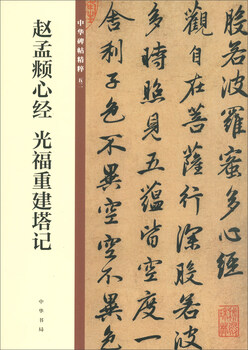 赵孟頫心经 光福重建塔记
中华碑帖精粹
中华书局
般若波羅蜜多心經
觀自在菩薩行深般若
時照見五蘊皆空度一
舍利子色不異空空不